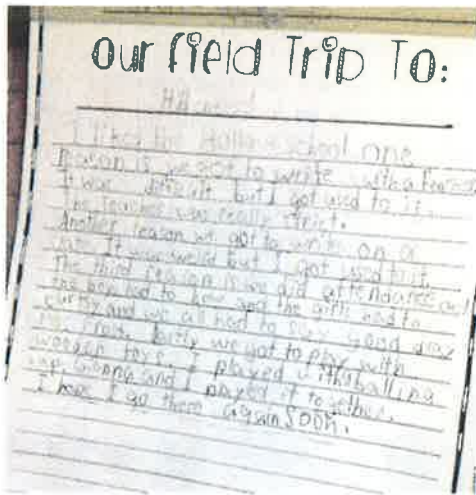 our field Trip To:
I likes the Hollow school one
reason is we got to write with a
It was difficult but I got used to it.
The teacher was really strict.
Another reason we got to write on a
It was weird but I got used to it.
The third reason is we did attendance
the boy had to bow and the girls had to
curtsy and we all had to say good day
we got to play with
wooden toys. I played with
and I played it together.
I hope I go there again soon.